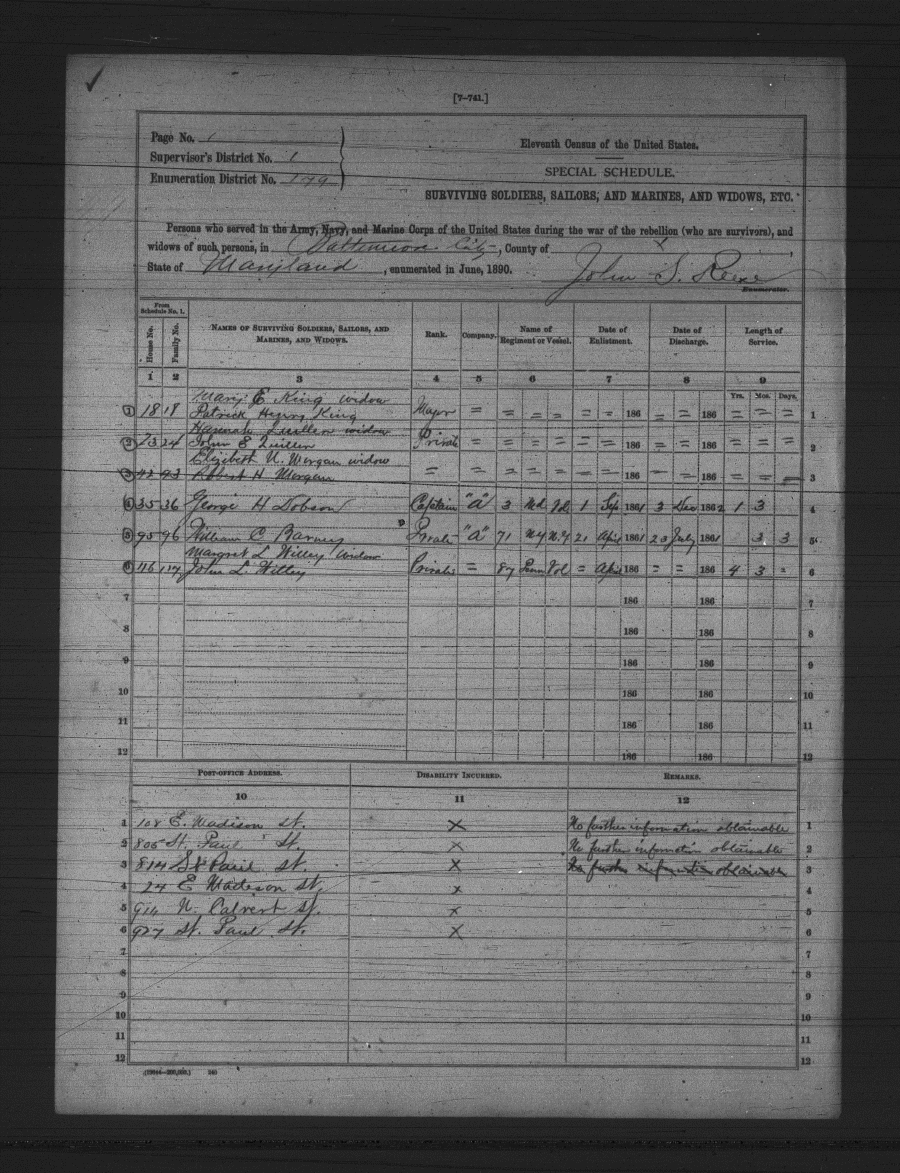 [7-741.]
Page No. 1
Supervisor's District No. 1
Enumeration District No. 179
Eleventh Census of the United States.
SPECIAL SCHEDULE.
SURVIVING SOLDIERS, SAILORS, AND MARINES, AND WIDOWS, ETC.
Persons who served in the Army, Navy, and Marine Corps of the United States during the war of the rebellion (who are survivors), and
widows of such persons, in Baltimore City, County of X,
State of Maryland, enumerated in June, 1890. John S.
Enumerator.
From Schedule No. 1.
House No. Family No. NAMES OF SURVIVING SOLDIERS, SAILORS, AND MARINES, AND WIDOWS. Rank. Company. Name of Regiment or Vessel. Date of Enlistment. Date of Discharge. Length of Service.
1 2 3 4 5 6 7 8 9
Yrs. Mos. Days.
Mary E King widow
1 18 18 Patrick Henry King Major = = = = = = 186 = = 186 = = = 1
Hannah Quillen widow
2 23 24 John E Quillen Privat = = = = = = 186 = = 186 = = = 2
Elizibeth N. Morgan widow
3 42 43 Robert H Morgan = = = = = = = 186 = = 186 = = = 3
4 35 36 George H Dobson Captain "A" 3 Md Vol 1 Sep 1861 3 Dec 1862 1 3 4
5 95 96 William C Barney Privat "A" 71 NY 21 April 1861 23 July 1861 3 3 5
Margret L Willey Widow
6 116 117 John L. Willey Privat = 87 Penn Vol = April 186 = = 186 4 3 = 6
7 186 186 7
8 186 186 8
9 186 186 9
10 186 186 10
11 186 186 11
12 186 186 12
POST-OFFICE ADDRESS. DISABILITY INCURRED. REMARKS.
10 11 12
1 108 E. Madison St. X No further information obtainable 1
2 805 St. Paul St. X No further information obtainable 2
3 814 St Paul St. X No further information obtainable 3
4 24 E Madison St. X 4
5 914 N. Calvert St. X 5
6 927 St. Paul St. X 6
7 7
8 8
9 9
10 10
11 11
12 12